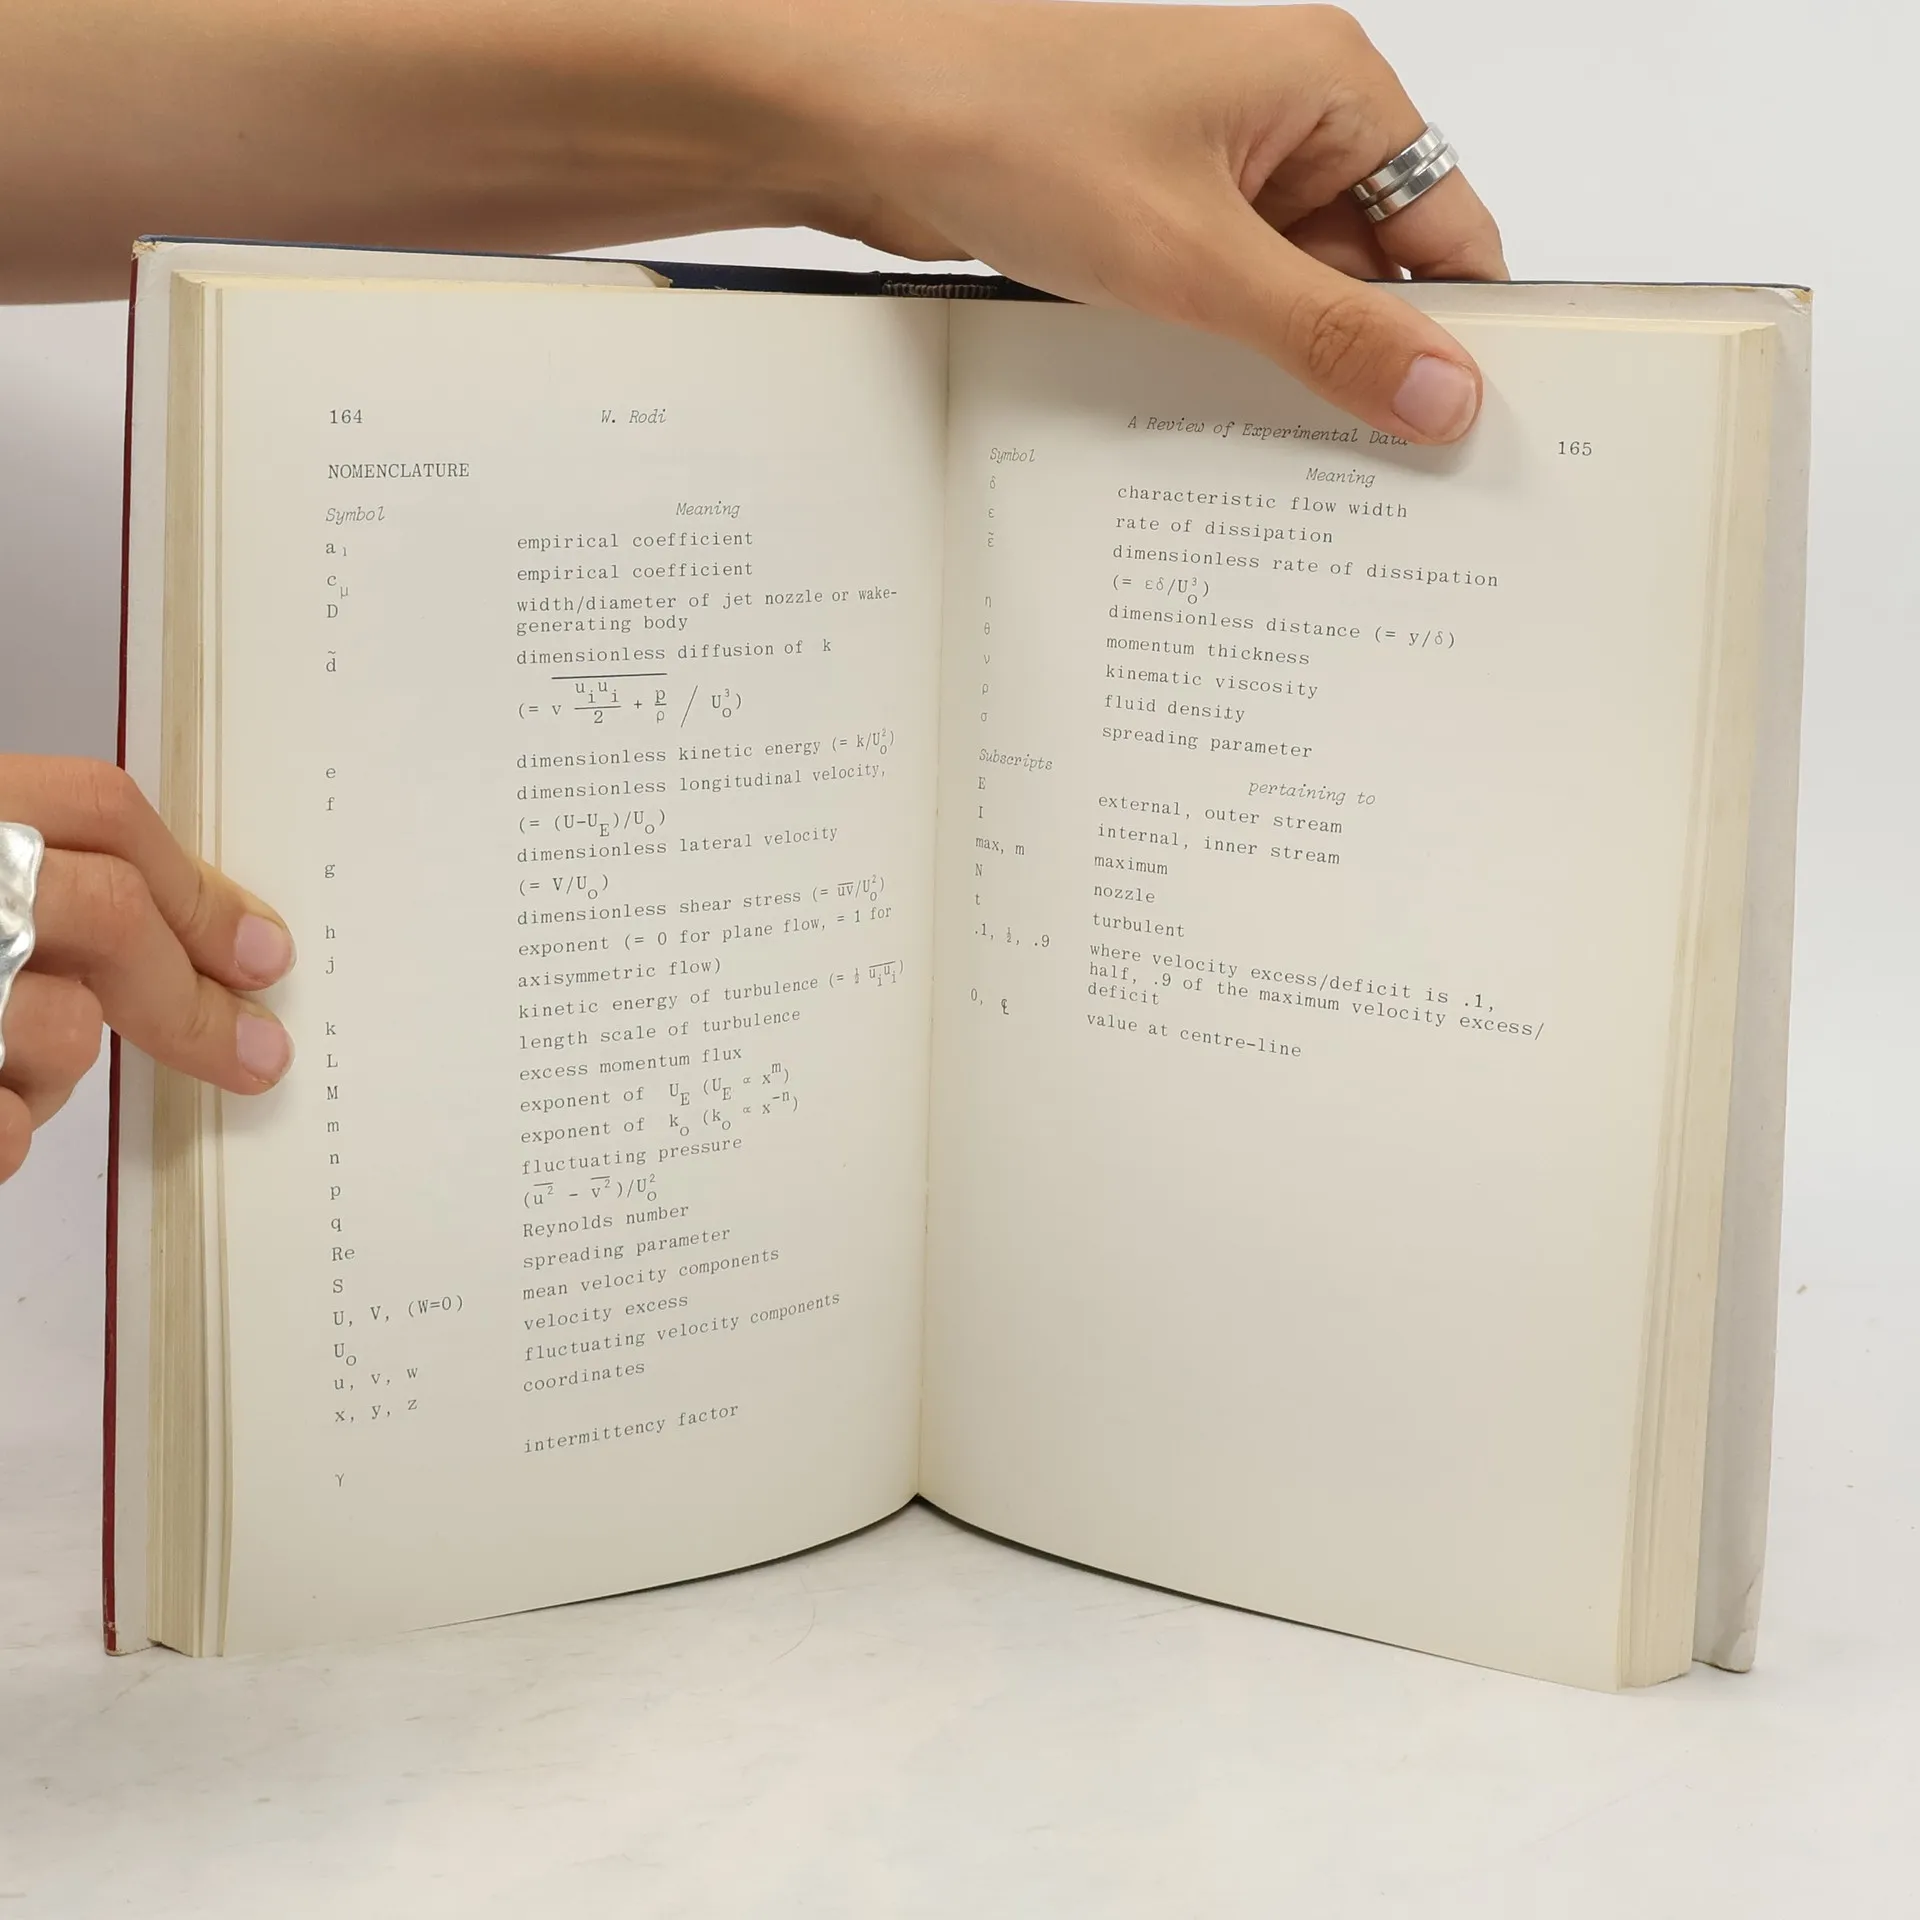 164 W. Rodi
NOMENCLATURE
Symbol Meaning
a₁ empirical coefficient
c_μ empirical coefficient
D width/diameter of jet nozzle or wake-
generating body
d̃ dimensionless diffusion of k
(= v u_iu_i/2 + p/ρ / U_o³)
e dimensionless kinetic energy (= k/U_o²)
f dimensionless longitudinal velocity,
(= (U-U_E)/U_o)
g dimensionless lateral velocity
(= V/U_o)
h dimensionless shear stress (= u̅v̅/U_o²)
j exponent (= 0 for plane flow, = 1 for
axisymmetric flow)
k kinetic energy of turbulence (= ½ u̅_i̅u̅_i̅)
L length scale of turbulence
M excess momentum flux
m exponent of U_E (U_E ∝ x^m)
n exponent of k_o (k_o ∝ x^-n)
p fluctuating pressure
q (u̅² - v̅²)/U_o²
Re Reynolds number
S spreading parameter
U, V, (W=0) mean velocity components
U_o velocity excess
u, v, w fluctuating velocity components
x, y, z coordinates
γ intermittency factor
A Review of Experimental Data 165
Symbol Meaning
δ characteristic flow width
ε rate of dissipation
ε̃ dimensionless rate of dissipation
(= εδ/U_o³)
η dimensionless distance (= y/δ)
θ momentum thickness
ν kinematic viscosity
ρ fluid density
σ spreading parameter
Subscripts pertaining to
E external, outer stream
I internal, inner stream
max, m maximum
N nozzle
t turbulent
.1, ½, .9 where velocity excess/deficit is .1,
half, .9 of the maximum velocity excess/
deficit
0, ℄ value at centre-line